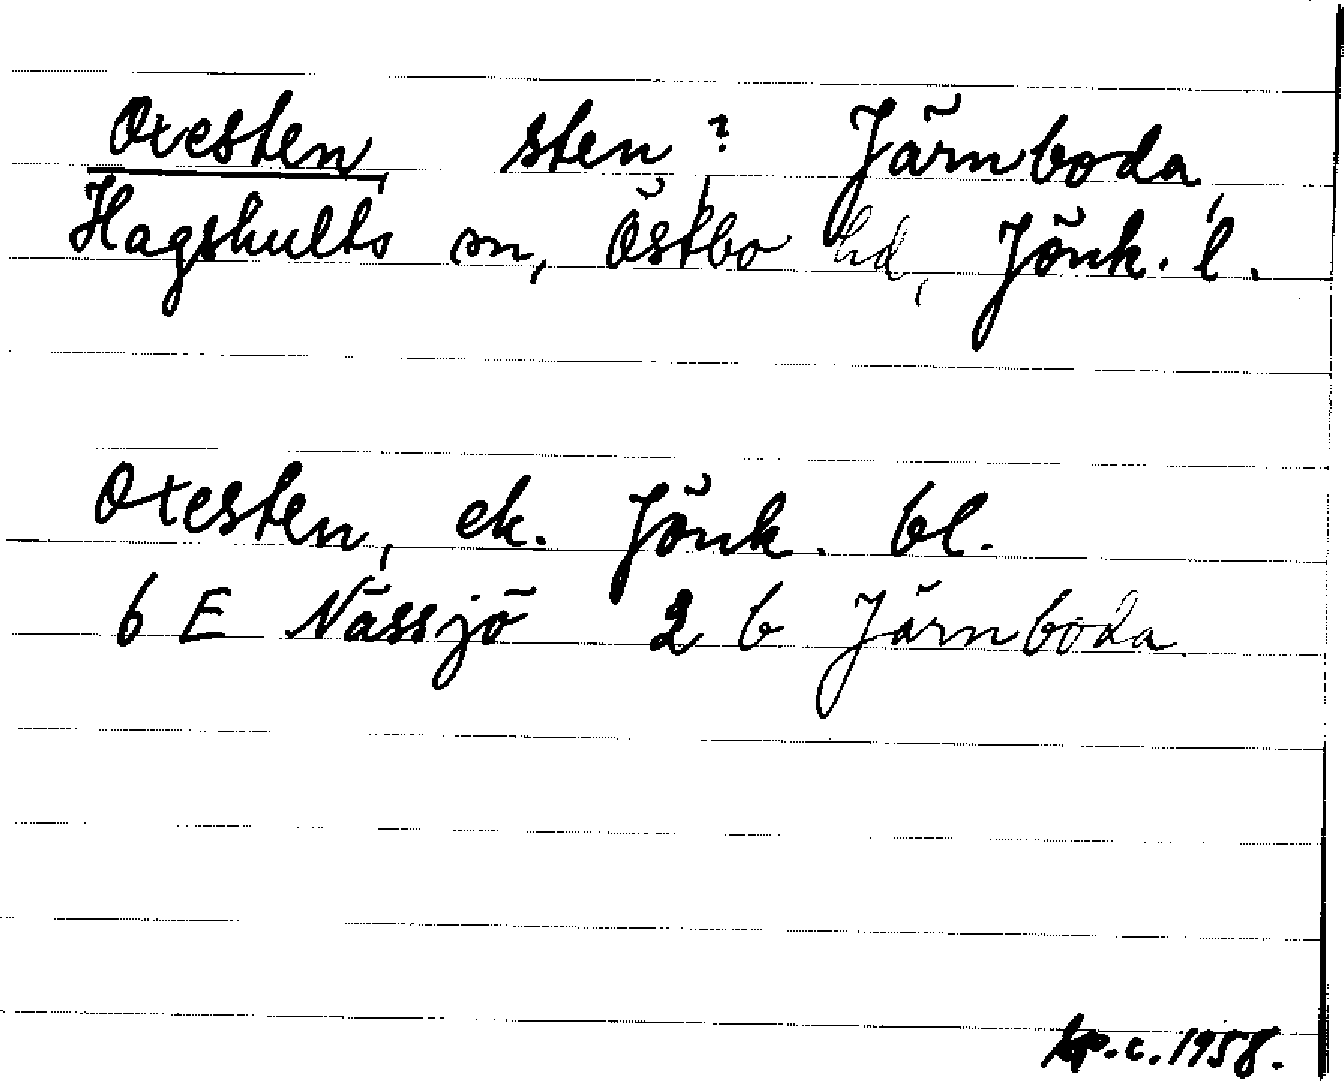 Oxesten, sten?, Järnboda,
Hagshults sn, Östbo hd, Jönk. l.
Oxesten, ek. Jönk. bl.
6 E Nässjö 2 b Järnboda.
c. 1958.